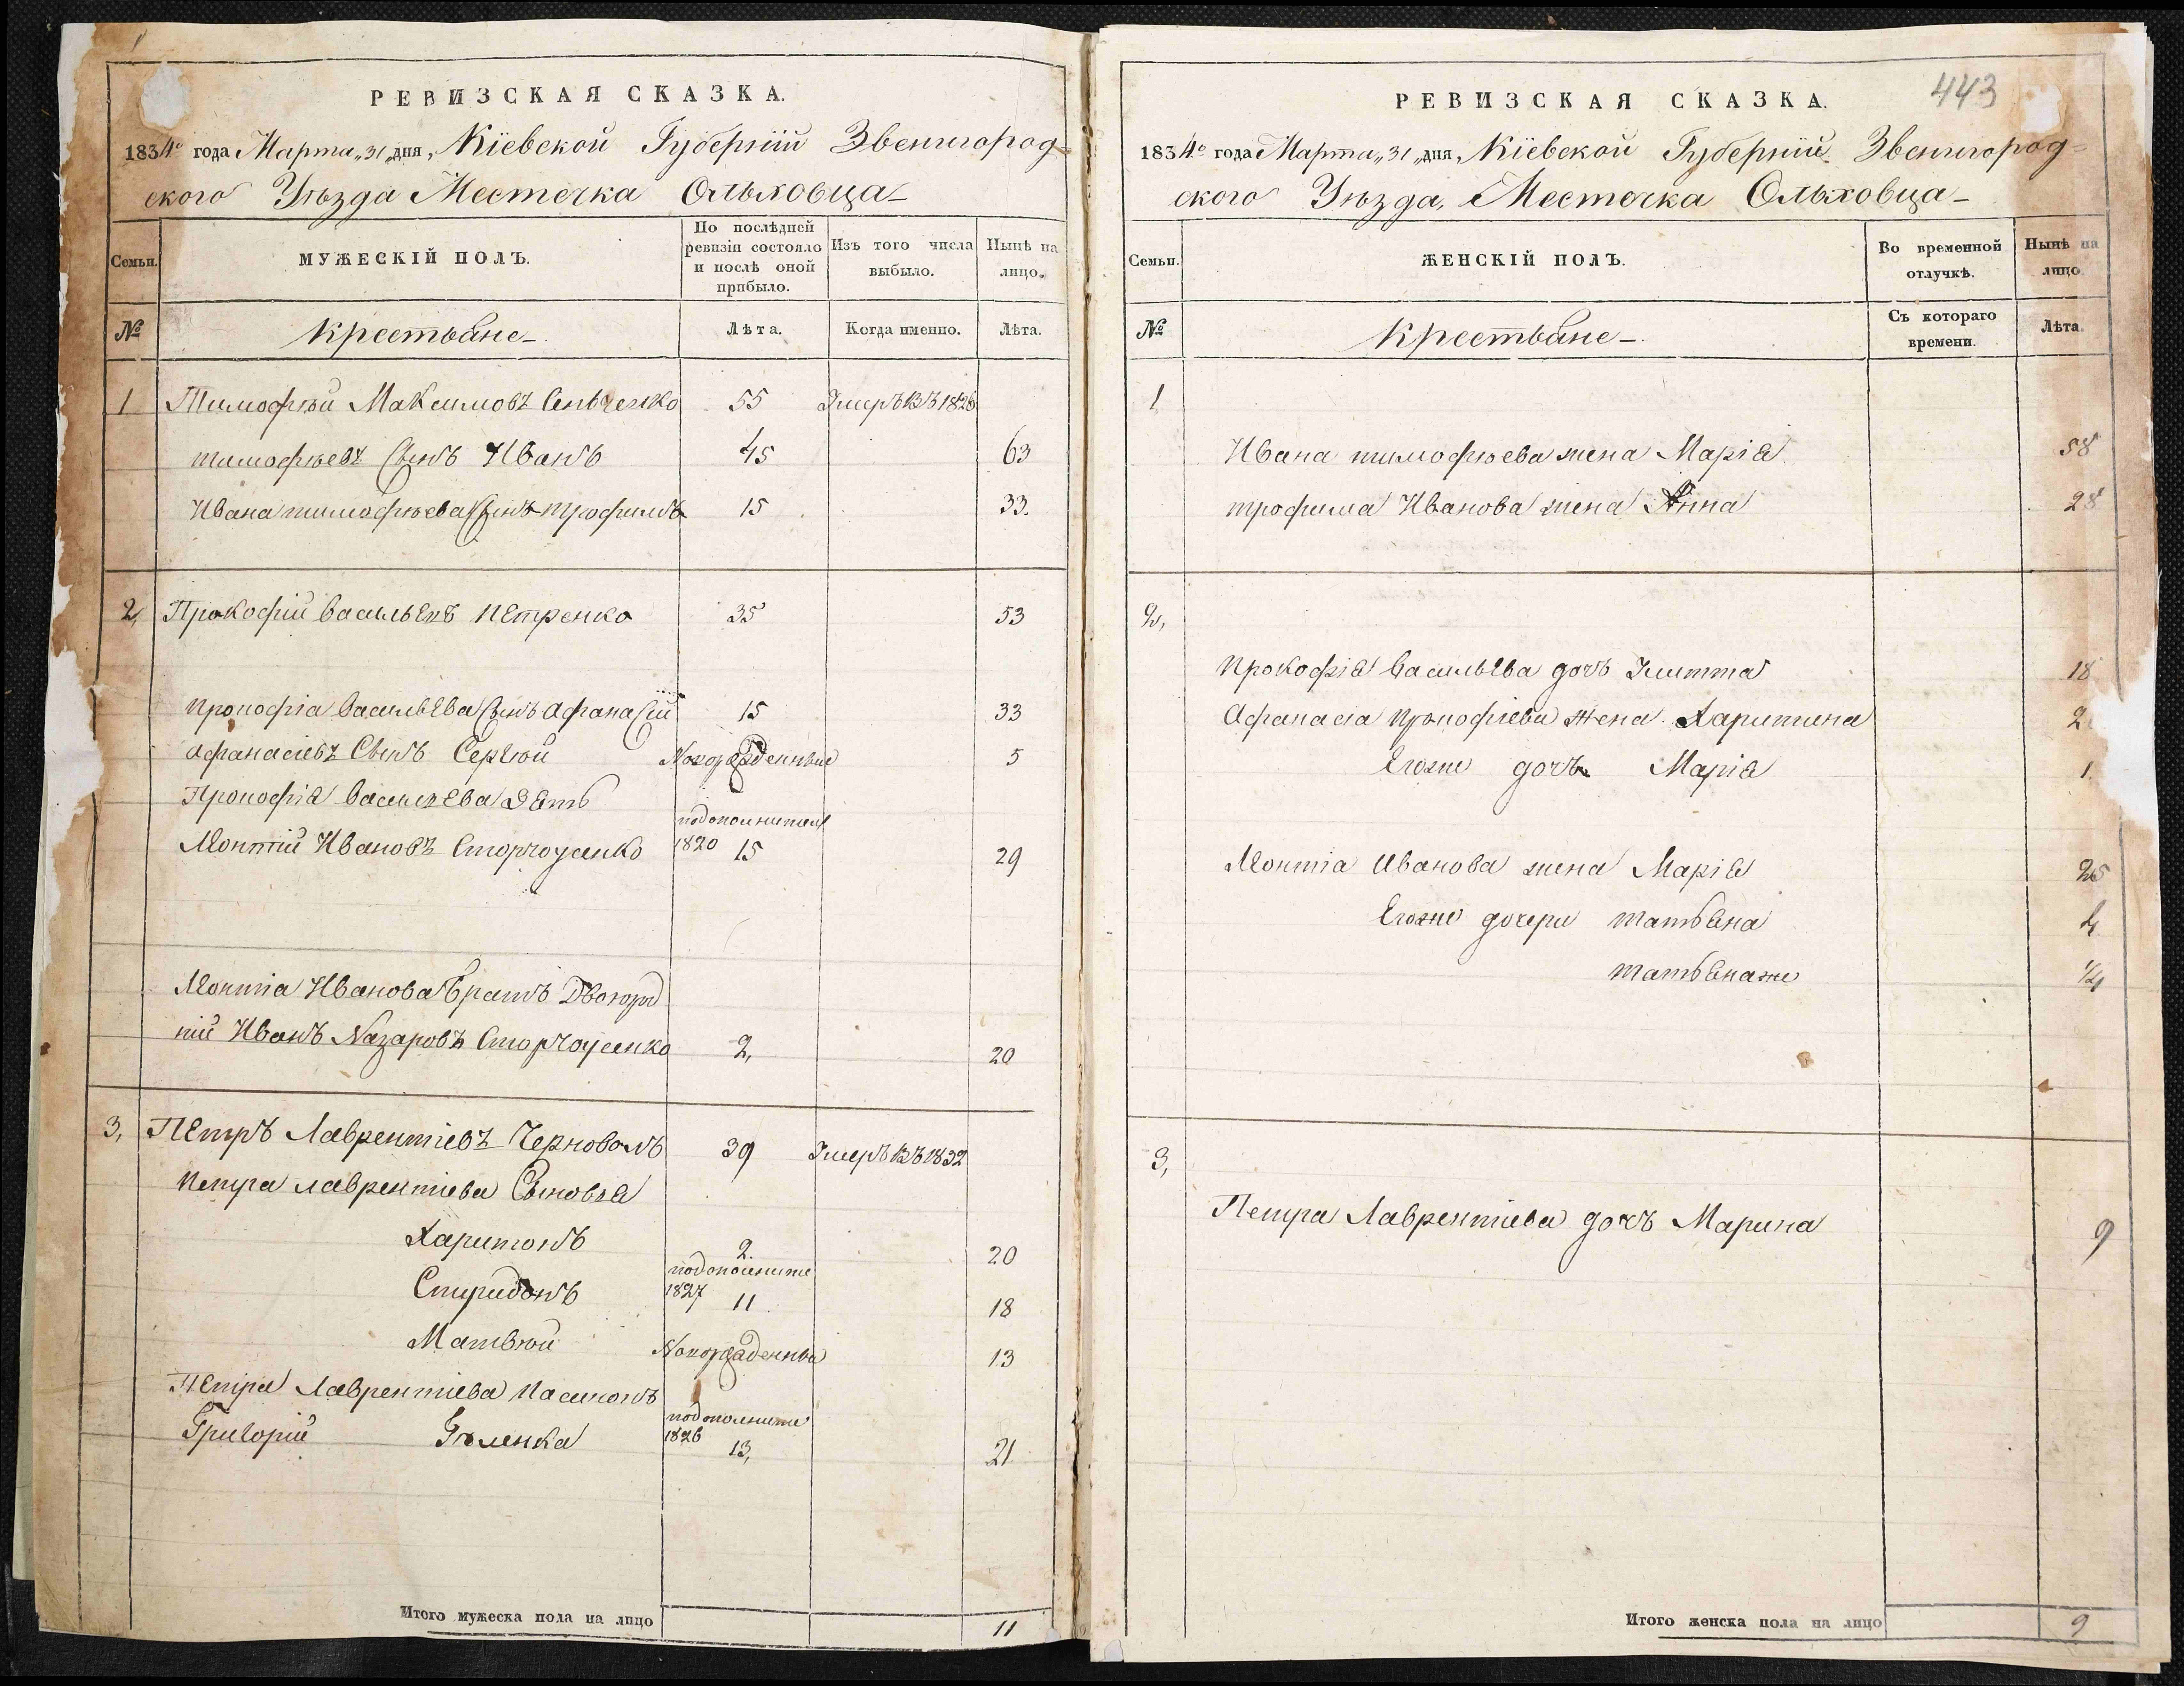 РЕВИЗСКАЯ СКАЗКА.
1834го года Марта „31„ дня, Кіевской Губерніи Звенигород-
ского Уѣзда Местечка Ольховца
Семьи.
МУЖЕСКІЙ ПОЛЪ.
По послѣдней ревизіи состояло и послѣ оной прибыло.
Изъ того числа выбыло.
Нынѣ на лицо.
№
Крестьяне
Лѣта.
Когда именно.
Лѣта.
1 Тимофѣй Максимовъ Сенченко 55 Умеръ въ 1826
тимофѣевъ Сынъ Иванъ 45 63
Ивана тимофѣева Сынъ трофимъ 15 33.
2, Прокофій Васильевъ Петренко 35 53
Прокофія Васильева Сынъ Афанасій 15 33
Афанасіевъ Сынъ Сергѣй Новорожденные 5
Прокофія Васильева Зять
подополнител
Леонтій Ивановъ Сторчоусенко 1820 15 29
Леонтія Иванова Братъ Двоюрд
ній Иванъ Назаровъ Сторчоусенко 2, 20
3, Петръ Лаврентіевъ Черноволъ 39 Умеръ въ 1832
Петра Лаврентіева Сыновья
Харитонъ 2. 20
подополните
Спиридонъ 1827 11 18
Матвѣй Новорожденны 13
Петра Лаврентіева Пасынокъ
подополните
Григорій 1826 13, 21
Итого мужеска пола на лицо 11
443
РЕВИЗСКАЯ СКАЗКА.
1834го года Марта „31„ дня, Кіевской Губерніи Звенигород-
ского Уѣзда, Местечка Ольховца
Семьи.
ЖЕНСКІЙ ПОЛЪ.
Во временной отлучкѣ.
Нынѣ на лицо.
№
Крестьяне
Съ котораго времени.
Лѣта.
1
Ивана тимофѣева жена Марія 58
трофима Иванова жена Анна 28
2,
Прокофія Васильева дочь 18
Афанасія Прокофіева жена Харитина
Егоже дочь Марія 1.
Леонтія Иванова жена Марія 25
Егоже дочери татьяна
татьянаже
3,
Петра Лаврентіева дочь Марина 9
Итого женска пола на лицо 9